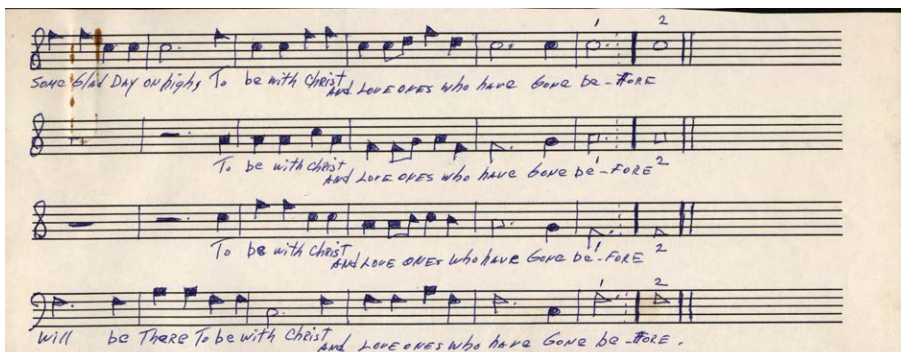 1 2
Some Glad Day on high, To be with Christ And Love ones who have Gone be-Fore
To be with Christ And Love ones who have Gone be-Fore
1 2
To be with Christ And Love ones who have Gone be-Fore
1 2
1 2
Will be There To be with Christ And Love ones who have Gone be-Fore.